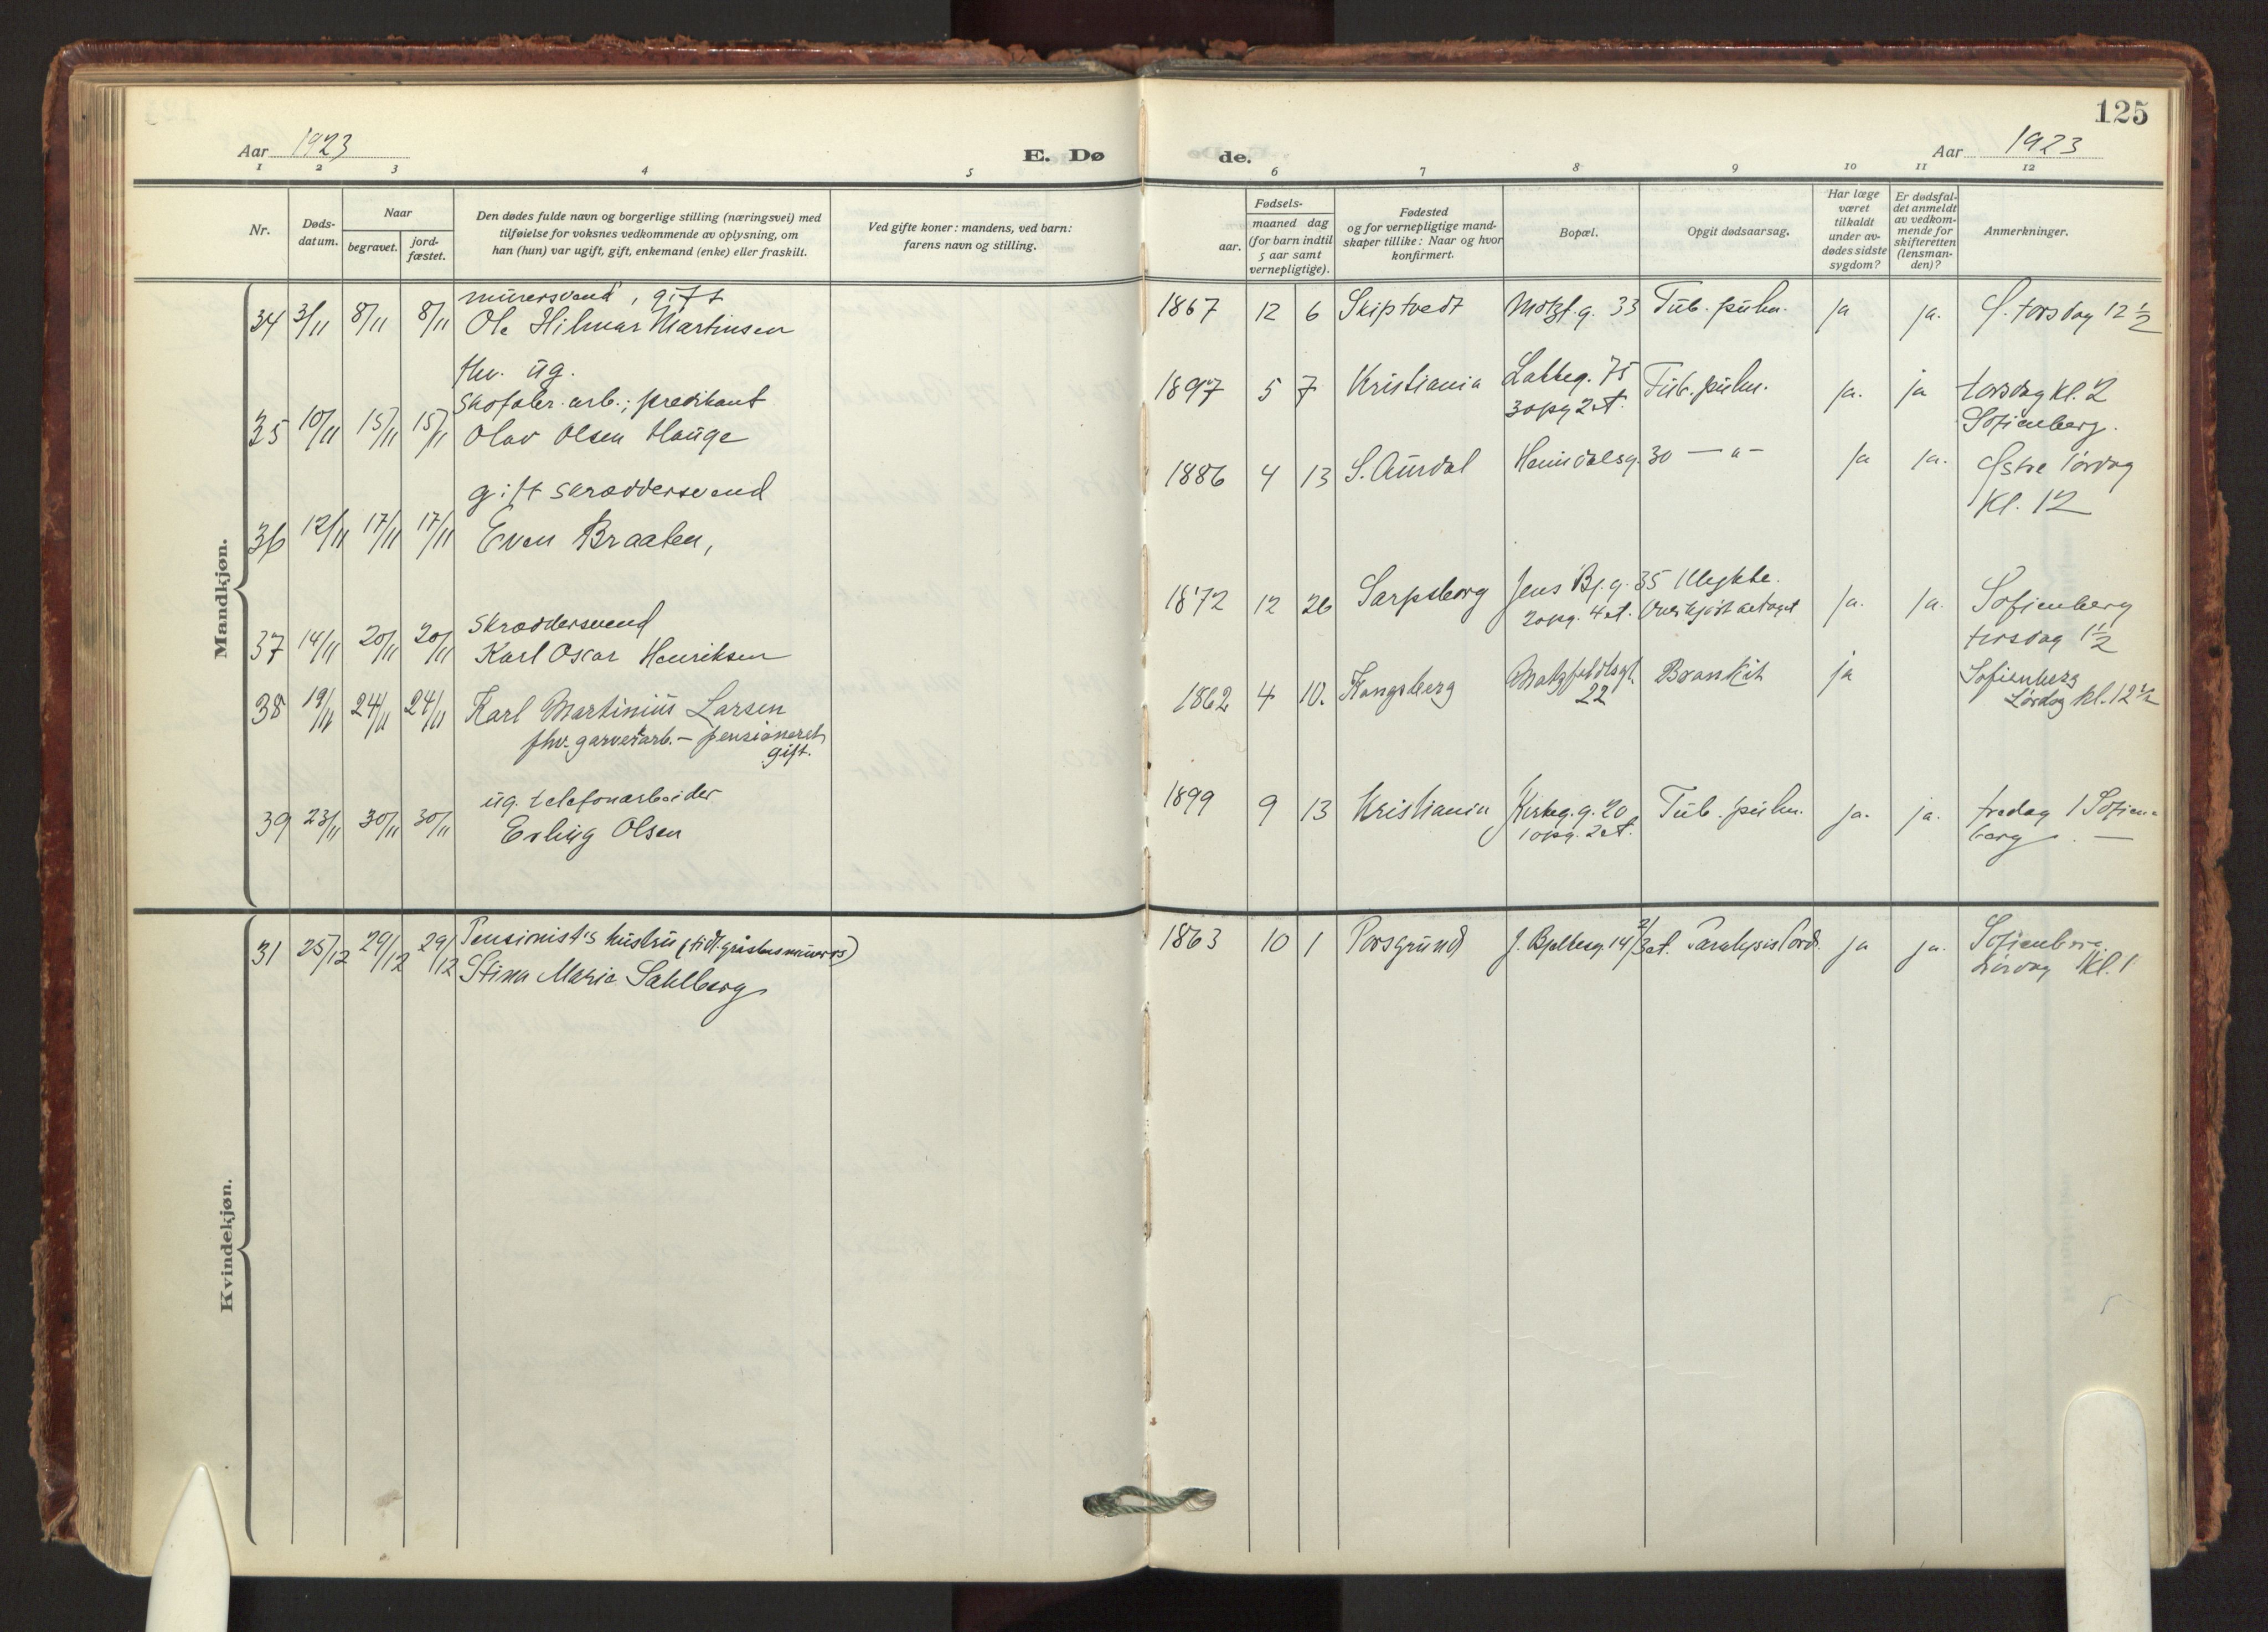 125
Aar 1923
E. Dø
de.
Aar 1923
1 2 3 4 5 6 7 8 9 10 11 12
Nr.
Døds-
datum.
Naar
begravet.
jord-
fæstet.
Den dødes fulde navn og borgerlige stilling (næringsvei) med
tilføielse for voksnes vedkommende av oplysning, om
han (hun) var ugift, gift, enkemand (enke) eller fraskilt.
Ved gifte koner: mandens, ved barn:
farens navn og stilling.
Fødsels-
aar.
maaned dag
(for barn indtil
5 aar samt
vernepligtige).
Fødested
og for vernepligtige mand-
skaper tillike: Naar og hvor
konfirmert.
Bopæl.
Opgit dødsaarsag.
Har læge
været
tilkaldt
under av-
dødes sidste
sygdom?
Er dødsfal-
det anmeldt
av vedkom-
mende for
skifteretten
(lensman-
den)?
Anmerkninger.
Mandkjøn.
murersvend, gift
34 3/11 8/11 8/11 Ole Hilmar Martinsen
1867 12 6 Skiptvedt Motzf.g. 33 Tub. pulm. ja ja. Ø. torsdag 12 1/2
fhv. ug.
skofabr. arb.; predikant
35 10/11 15/11 15/11 Olav Olsen Hauge
1897 5 7 Kristiania 75 Tub. pulm. ja. ja torsdag kl. 2
3 opg 2 et. Sofienberg.
gift skræddersvend
36 12/11 17/11 17/11 Even Braaten,
1886 4 13 S. Aurdal Heimdalsg. 30 — " — ja ja. Østre lørdag
kl. 12
skræddersvend
37 14/11 20/11 20/11 Karl Oscar Henriksen
1872 12 26 Sarpsborg Jens Bj.g. 35 Ulykke. ja. ja. Sofienberg
2 opg. 4 et. Overkjørt av toget tirsdag 1 1/2
38 19/11 24/11 24/11 Karl Martinius Larsen
fhv. garverarb. – pensioneret
gift.
1862 4 10. Kongsberg Motzfeldtsgt. Bronkit ja Sofienberg
22 Lørdag kl. 12 1/2
ug. telefonarbeider
39 23/11 30/11 30/11 Erling Olsen
1899 9 13 Kristiania Kirkeg.g. 20 Tub. pulm. ja. ja. fredag 1 Sofien-
1 opg. 2 et. berg. —
Kvindekjøn.
Pensionist's hustru
31 25/12 29/12 29/12 Stina Maria Sahlberg
1863 10 1 Porsgrund J. Bjelkesg. 14 2/3 et. Paralysis cord. ja ja. Sofienberg
Lørdag kl. 1